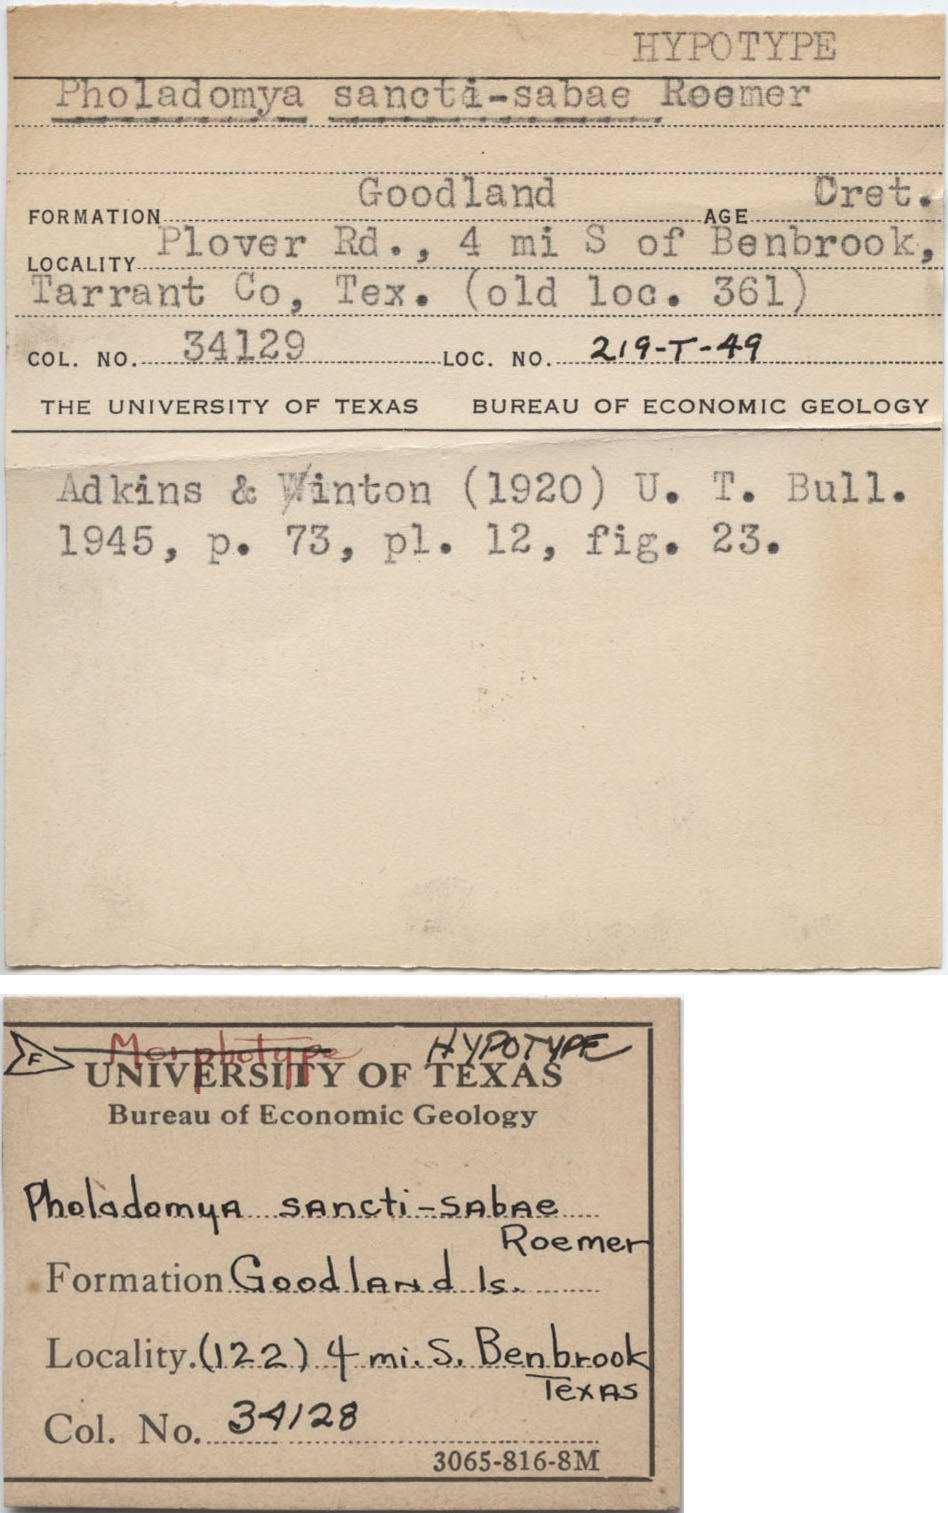 HYPOTYPE
Pholadomya sancti-sabae Roemer
FORMATION Goodland AGE Cret.
LOCALITY Plover Rd., 4 mi S of Benbrook,
Tarrant Co, Tex. (old loc. 361)
COL. NO. 34129 LOC. NO. 219-T-49
THE UNIVERSITY OF TEXAS BUREAU OF ECONOMIC GEOLOGY
Adkins & Winton (1920) U. T. Bull.
1945, p. 73, pl. 12, fig. 23.
F Morphotype HYPOTYPE
UNIVERSITY OF TEXAS
Bureau of Economic Geology
Pholadomya sancti-sabae
Roemer
Formation Goodland ls.
Locality. (122) 4 mi. S. Benbrook
Texas
Col. No. 34128
3065-816-8M